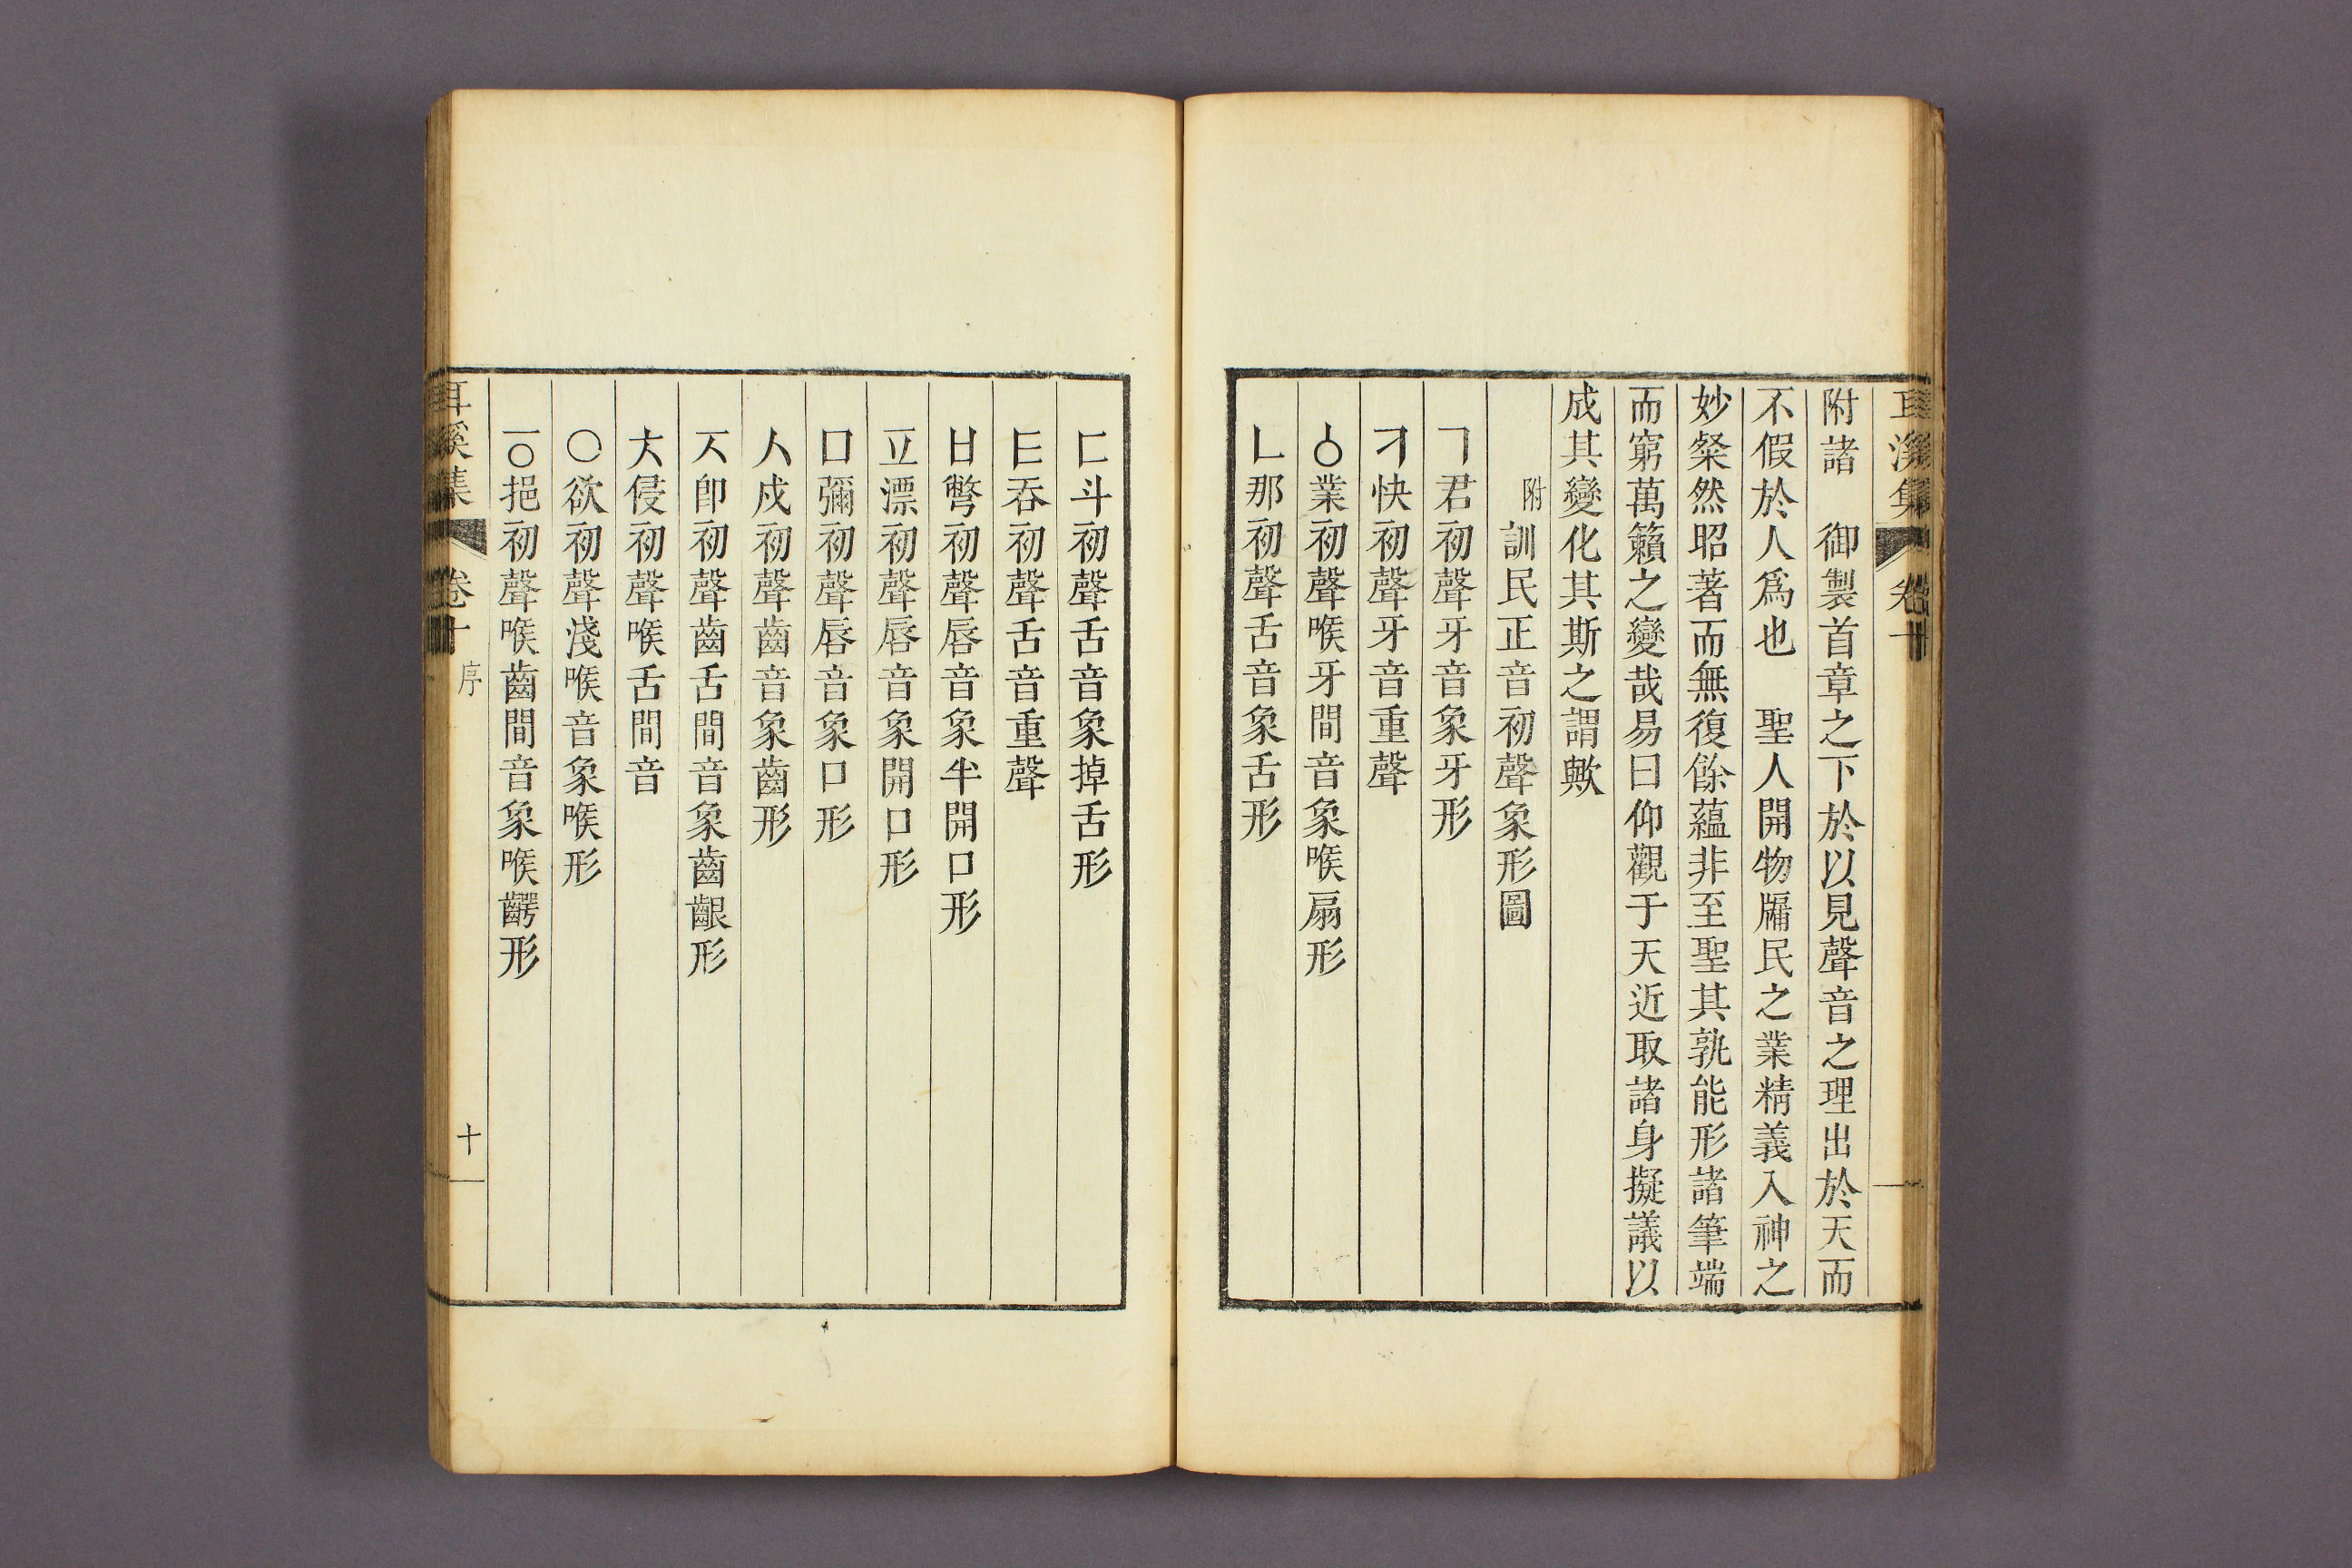 耳溪集 卷十
附諸　御製首章之下於以見聲音之理出於天而
不假於人爲也　聖人開物牖民之業精義入神之
妙粲然昭著而無復餘蘊非至聖其孰能形諸筆端
而窮萬籟之變哉易曰仰觀于天近取諸身擬議以
成其變化其斯之謂歟
附訓民正音初聲象形圖
ㄱ君初聲牙音象牙形
ㅋ快初聲牙音重聲
ㆁ業初聲喉牙間音象喉扇形
ㄴ那初聲舌音象舌形
ㄷ斗初聲舌音象掉舌形
ㅌ呑初聲舌音重聲
ㅂ彆初聲唇音象半開口形
ㅍ漂初聲唇音象開口形
ㅁ彌初聲唇音象口形
ㅅ戌初聲齒音象齒形
ㅈ卽初聲齒舌間音象齒齦形
ㅊ侵初聲喉舌間音
ㅇ欲初聲淺喉音象喉形
ㆆ挹初聲喉齒間音象喉齶形
耳溪集 卷十 序 十